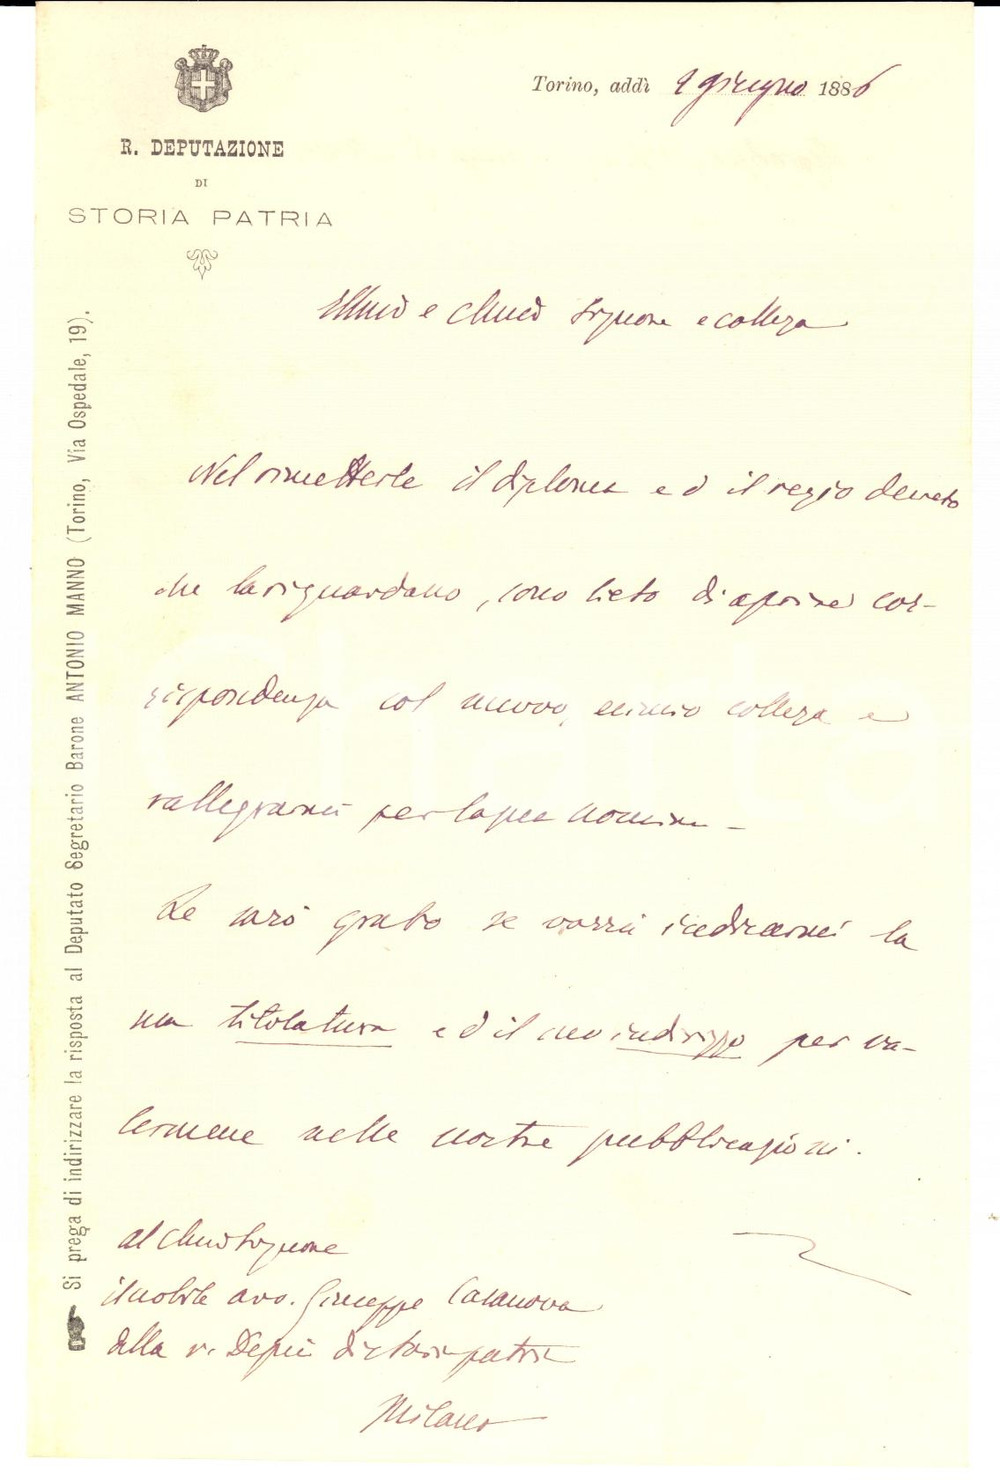 Torino, addì 9 giugno 1886
R. DEPUTAZIONE
DI
STORIA PATRIA
Si prega di indirizzare la risposta al Deputato Segretario Barone ANTONIO MANNO (Torino, Via Ospedale, 19).
Illmo e Chmo Signore e collega
Nel rimetterle il diploma ed il regio decreto
che la riguardano, sono lieto di aprire cor-
rispondenza col nuovo, esimio collega e
rallegrarmi per la sua nomina –
Le sarò grato se vorrà indicarmi la
sua titolatura ed il suo indirizzo per va-
lermene nelle nostre pubblicazioni.
al Chmo Signore
il nobile avv. Giuseppe Casanova
della r. Depne di storia patria
Milano